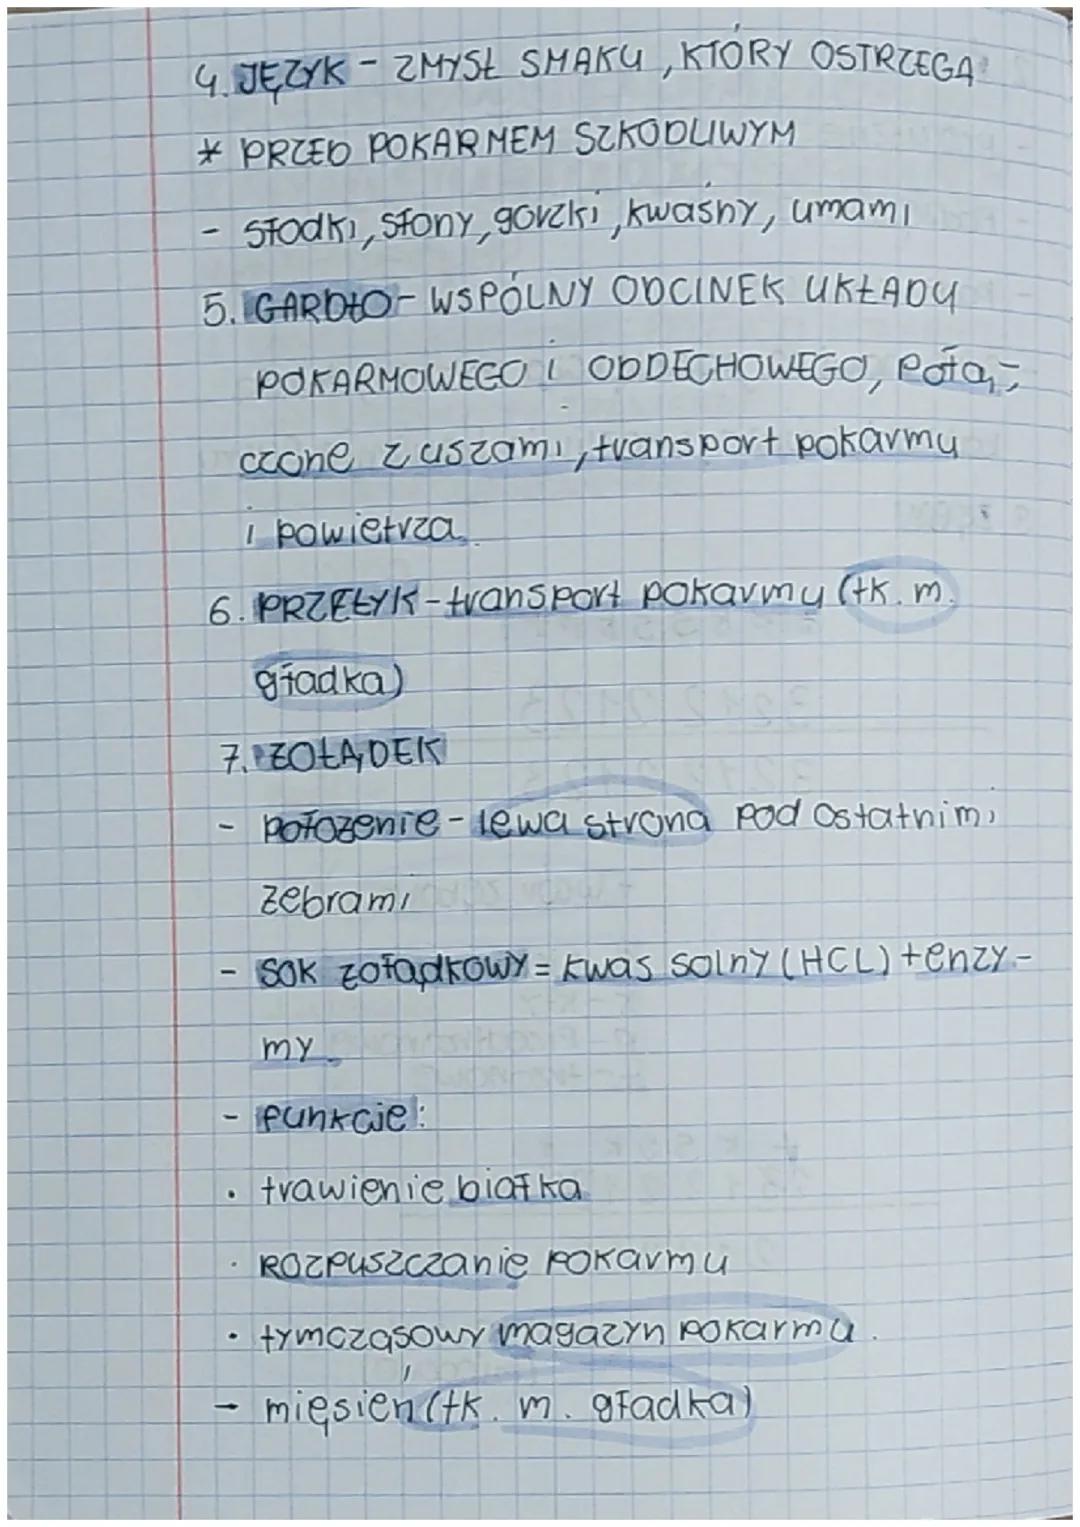 4. JĘZYK - ZMYSŁ SMAKU, KTÓRY OSTRZEGA
* PRZED POKARMEM SZKODLIWYM
- słodki, słony, gorzki, kwaśny, umami
5. GARDŁO - WSPÓLNY ODCINEK UKŁADU
POKARMOWEGO i ODDECHOWEGO, połą-
czone z uszami, transport pokarmu
i powietrza
6. PRZEŁYK - transport pokarmu (tk. m.
gładka)
7. ŻOŁĄDEK
- położenie - lewa strona pod ostatnimi
żebrami
- SOK żołądkowy = kwas solny (HCL) + enzy-
my
- funkcje:
· trawienie białka
· ROZPUSZCZANIE POKARMU
· tymczasowy magazyn pokarmu.
- mięsień (tk. m. gładka)